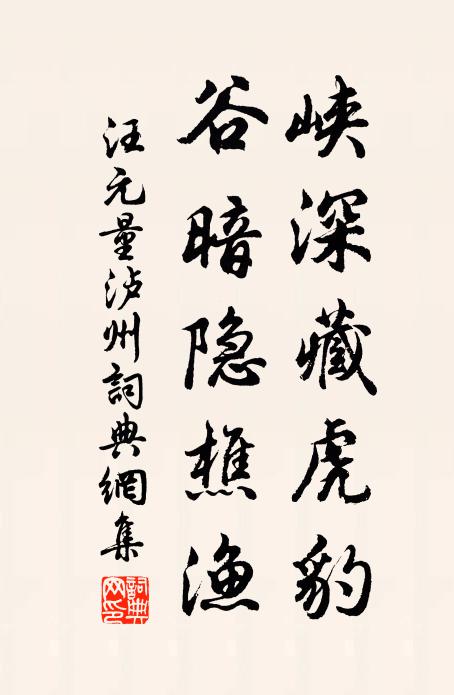 峡深藏虎豹
谷暗隐樵渔
汪元量泸州詞典網集
詞典网印